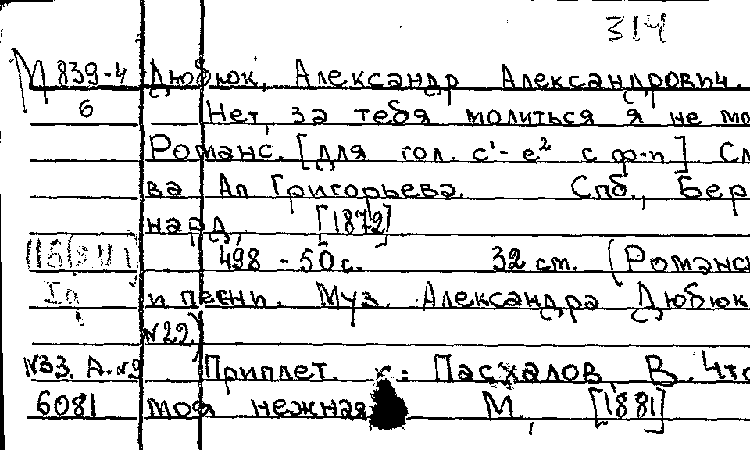 314
М 839-4 Дюбюк, Александр Александрович.
6 Нет, за тебя молиться я не мо
Романс. [для гол. c¹-e² с ф-п] Сл
ва Ап Григорьева. Спб., Бер
нард, [1872]
498-50 с. 32 cm. (Романс
и песни. Муз. Александра Дюбюк
№22)
№33. А. №9 Приплет. к: Пасхалов, В. Что
6081 моя нежная М., [1881]